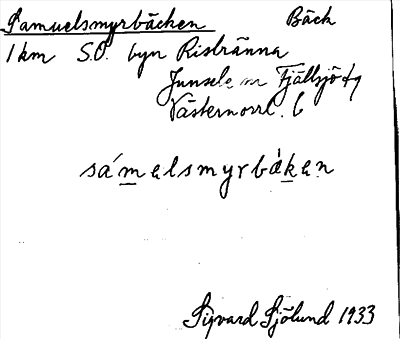 Samuelsmyrbäcken Bäck
1 km S.O. byn Risbränna
Junsele sn Fjällsjö tg
Västernorrl. l
sámelsmyrbä́ken
Sigvard Sjölund 1933